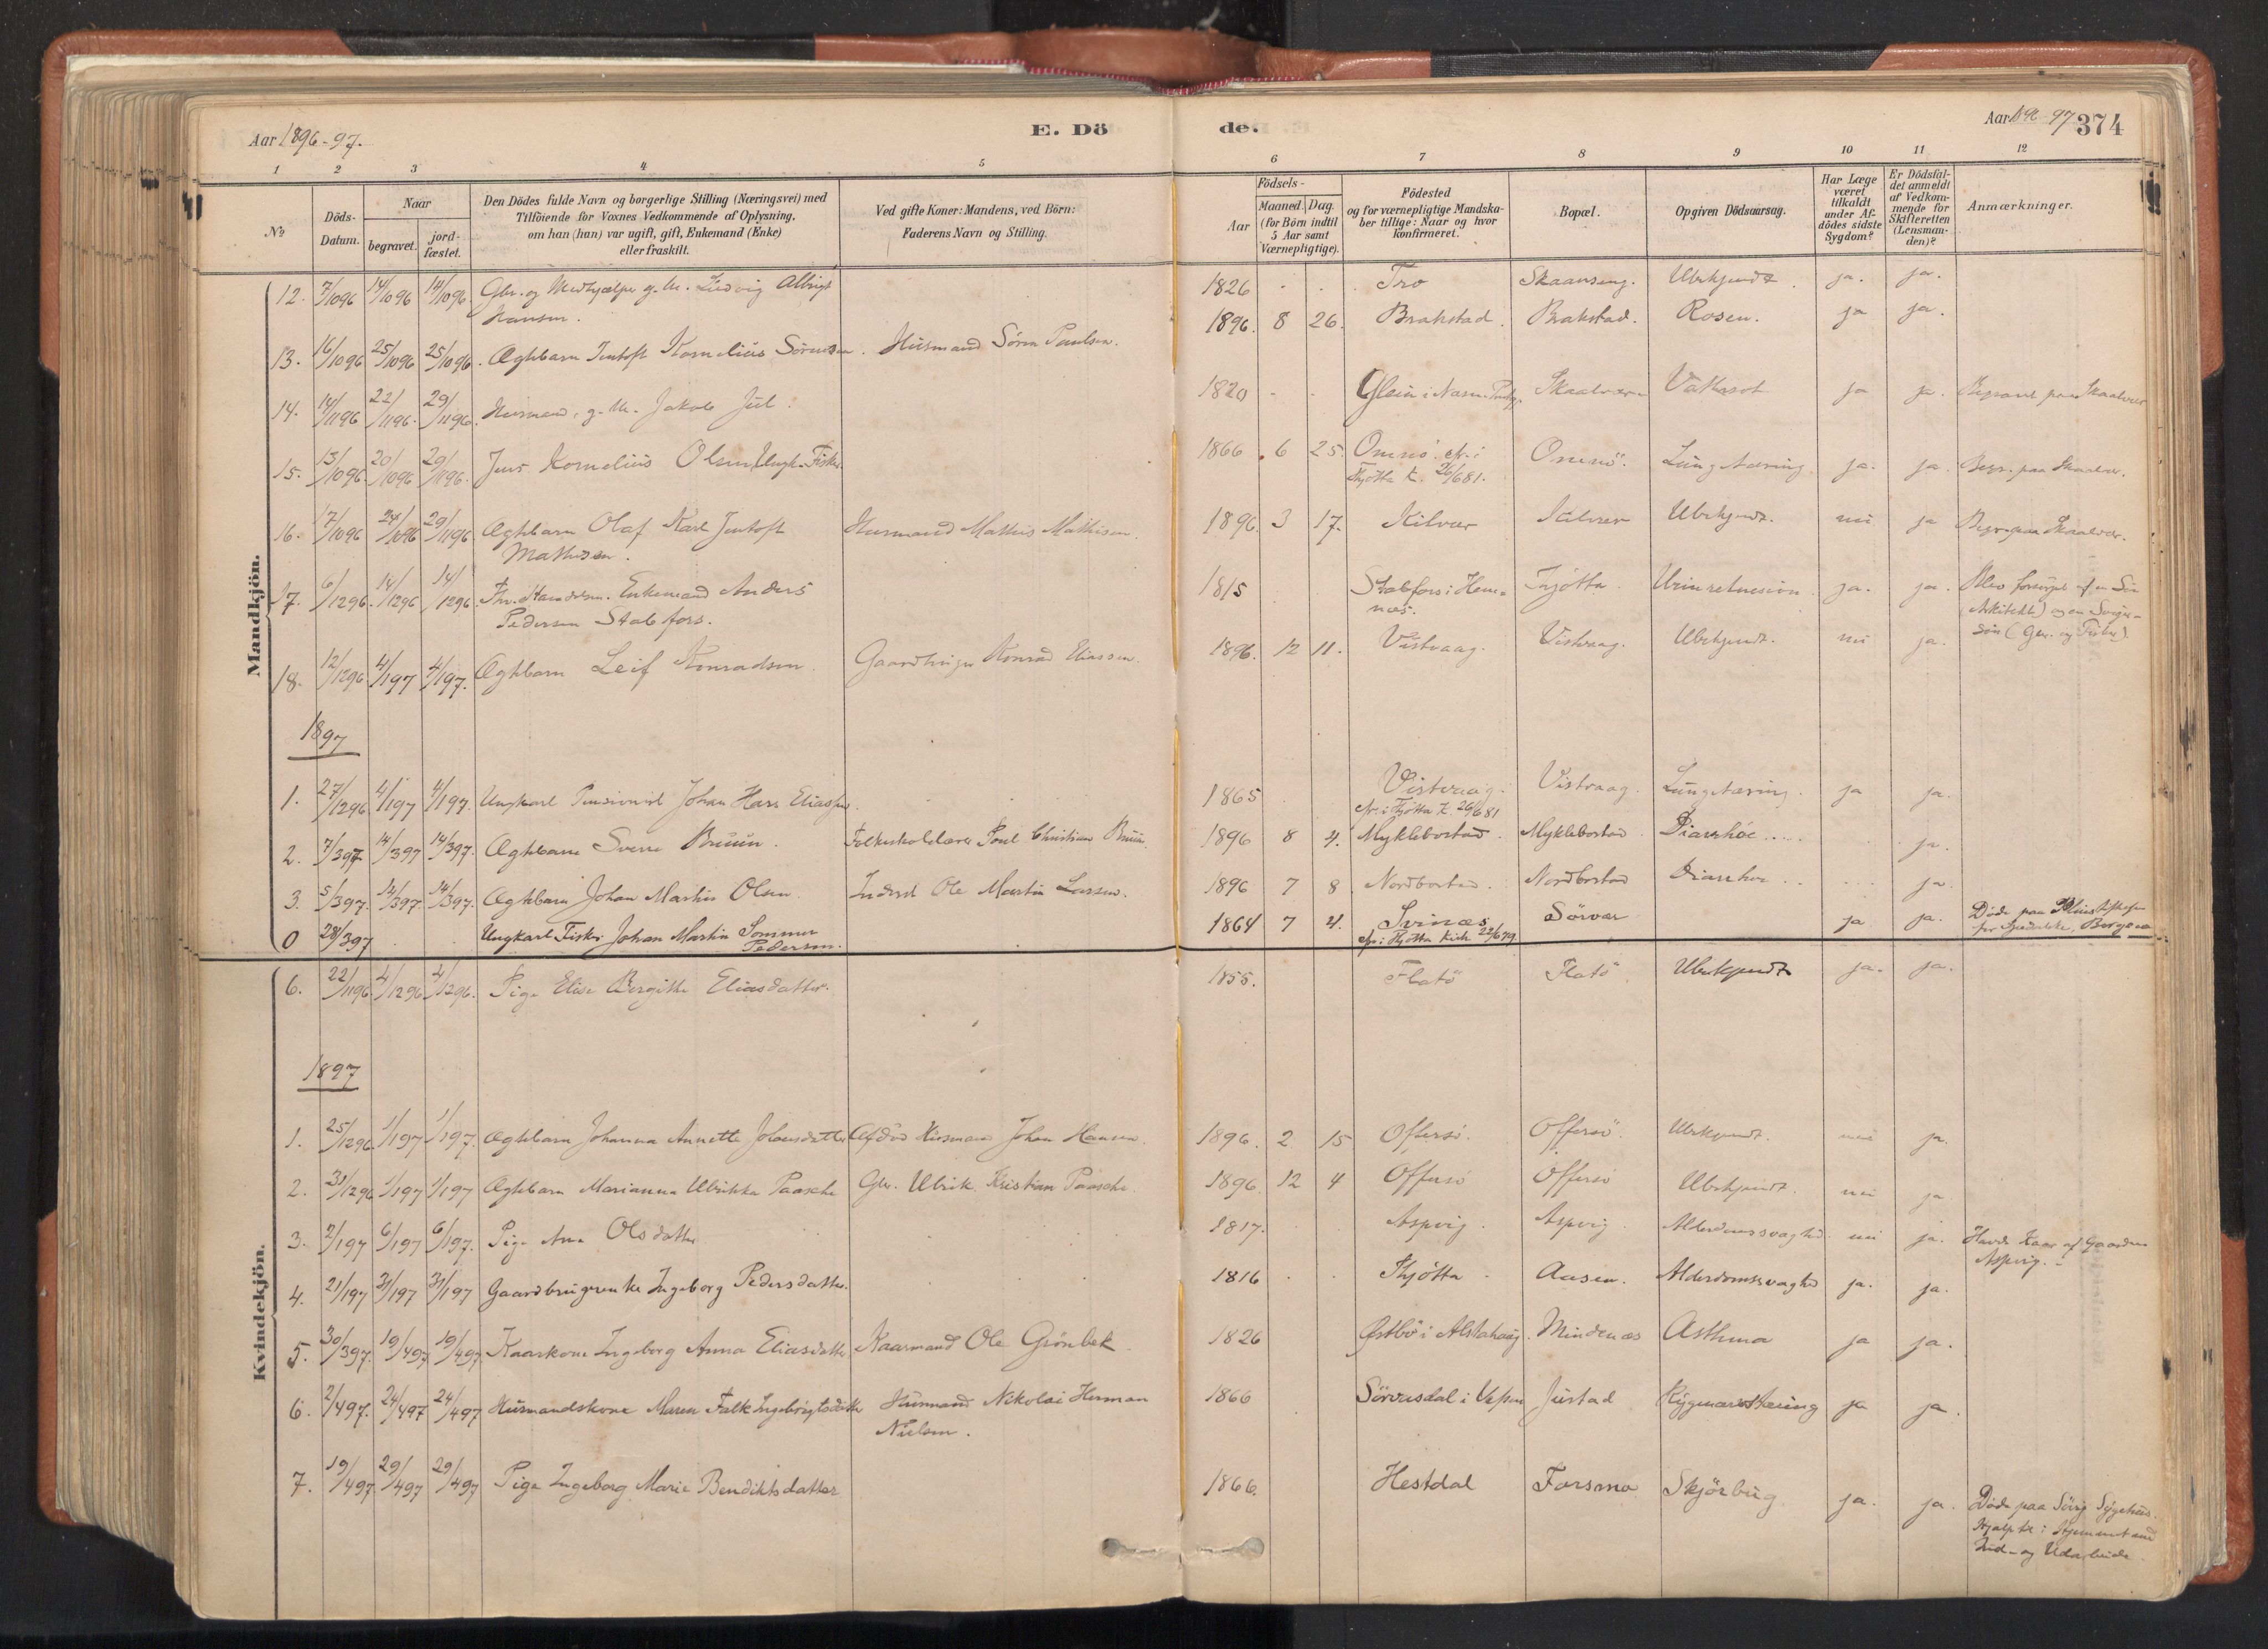 Aar 1896-97.
E. Dö
de.
Aar 1896-97
374
1 2 3 4 5 6 7 8 9 10 11 12
No
Döds-
Datum.
Naar
begravet.
jord-
fæstet.
Den Dödes fulde Navn og borgerlige Stilling (Næringsvei) med
Tilföiende for Voxnes Vedkommende af Oplysning.
om han (hun) var ugift, gift, Enkemand (Enke)
eller fraskilt.
Ved gifte Koner: Mandens, ved Börn:
Faderens Navn og Stilling.
Födsels-
Aar
Maaned. Dag.
(for Börn indtil
5 Aar samt
Værnepligtige).
Födested
og for værnepligtige Mandska-
ber tillige: Naar og hvor
konfirmeret.
Bopæl.
Opgiven Dödsaarsag.
Har Læge
været
tilkaldt
under Af-
dödes sidste
Sygdom?
Er Dödsfal-
det anmeldt
af Vedkom-
mende for
Skifteretten
(Lensman-
den)?
Anmærkninger.
Mandkjön.
12. 7/1096 14/1096 14/1096 Gbr. og Medhjælper g. M. Ludvig Albrigt
Hansen.
1826 Tro Skaanseng. Ubekjendt. ja. ja.
13. 16/1096 25/1096 25/1096. Ægtebarn Jentoft Kornelius Sörensen. Husmand Sören Paulsen.
1896. 8 26. Brakstad. Brakstad. Rosen. ja ja.
14. 14/1196 22/1196. 29/1196. Husmand, g. M. Jakob Jul.
1820 - - Glein i Næsne Prstgj. Skaalvær. Vattersot ja ja. Begravet paa Skaalvær
15. 13/1096. 20/1096 29/1196. Jens Kornelius Olsen, Ungk. Fisker
1866. 6 25. Omnö. cfr. i
Tjötta K. 26/681.
Omnö. Lungetæring. ja. ja. Begr. paa Skaalvær.
16. 17/1096 24/1096 29/1196 Ægtebarn Olaf Karl Jentoft
Mathisen.
Husmand Mathis Mathisen.
1896. 3 17. Kilvær Kilvær Ubekjendt. nei ja Begr. paa Skaalvær.
17. 6/1296. 14/1296 14/1296 Fhv. Handelsm. Enkemand Anders
Pedersen Stabfors.
1815 Stabfors i Hem-
næs.
Tjötta. Urinretension. ja. ja. Blev forsörget af en Sön
(Arkitekt) og en Sviger-
sön (Gbr. og Fisker).
18. 12/1296 4/197 4/197. Ægtebarn Leif Konradsen. Gaardbruger Konrad Eliassen.
1896. 12 11. Vistvaag. Vistvaag. Ubekjendt. nei ja.
1897
1. 27/1296 4/197 4/197. Ungkarl Pensionist Johan Hars Eliassen.
1865 Vistvaag.
cfr. i Tjötta K. 26/681
Vistvaag. Lungetæring. ja ja.
2. 7/397 14/397 14/397. Ægtebarn Sverre Bruun. Folkeskolelærer Poul Christian Bruun.
1896 8 4. Myklebostad. Myklebostad. Diarrhöe ja.
3. 5/397. 14/397 14/397. Ægtebarn Johan Martin Olsen Inderst Ole Martin Larsen.
1896 7 8 Nordbostad. Nordbostad Diarrhoe ja.
0 28/397 Ungkarl Fisker Johan Martin Sommer
Pedersen.
1864 7 4. Svinæs
cfr. i Tjötta Kirk 22/679
Sörvær ja ja. Döde paa Pleiestiftelsen
for Spedalske, Bergen
Kvindekjön.
6. 22/1196 4/1296 4/1296. Pige Elise Bergitte Eliasdatter.
1855. Flatö Flatö Ubekjendt ja. ja.
1897
1. 25/1296. 1/197 1/197. Ægtebarn Johanna Annette Johansdatter Afdöd Husmand Johan Hansen.
1896. 2 15 Offersö. Offersö. Ubekjendt. nei ja.
2. 31/1296 1/197 1/197 Ægtebarn Marianna Ulrikka Paasche Gbr. Ulrik Kristian Paasche.
1896. 12 4 Offersö Offersö Ubekjendt. nei ja
3. 2/197 6/197 6/197. Pige Ane Olsdatter
1817. Aspvig. Aspvig. Alderdomssvaghed nei ja. Havde Kaar af Gaarden
Aspvig.
4. 21/197 31/197 31/197 Gaardbrugerenke Ingeborg Pedersdatter.
1816 Tjötta. Aasen. Alderdomssvaghed ja. ja.
5. 30/397. 19/497 19/497 Kaarkone Ingeborg Anna Eliasdatter Kaarmand Ole Grönbek.
1826 Östbö i Alstahaug. Mindenæs Asthma ja ja.
6. 2/497. 24/497 24/497 Husmandskone Maren Falk Ingebrigtsdatter Husmand Nikolai Herman
Nielsen.
1866 Sörvasdal i Vefsen Justad Rygmarvstæring ja ja.
7. 19/497 29/497 29/497 Pige Ingeborg Marie Bendiktsdatter
1866. Hestdal Forsmo Skjörbug ja. ja. Döde paa Sörig Sygehus.
Hjalp til i Hjemmet med
Ind- og Udarbeide.